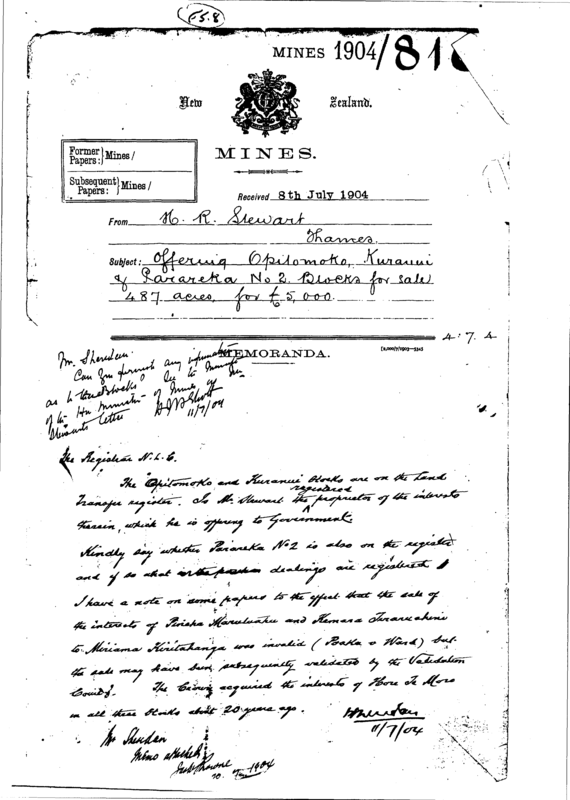 65.8
MINES 1904/81
New Zealand.
MINES.
Former Papers: } Mines/
Subsequent Papers: } Mines/
Received 8th July 1904
From H. R. Stewart
Thames.
Subject: Offering Opitomoko, Kuranui
& Parareka No 2. Blocks for sale
487 acres, for £5,000.
4.7.4
MEMORANDA.
Mr. Sheridan
Can you furnish any information
as to these Blocks?
of the Hon Minister of Mines
Stewarts letter
11/7/04
The Registrar N.L.C.
The Opitomoko and Kuranui blocks are on the Land
Transfer register. Is Mr Stewart the registered proprietor of the interests
therein, which he is offering to Government.
Kindly say whether Parareka No 2 is also on the register
and if so what dealings are registered
I have a note on some papers to the effect that the sale of
the interests of and
to Miriama Kiritahanga was invalid (Poaka v Ward) but
the sale may have been subsequently validated by the Validation
Court. The Crown acquired the interests of Hore Te More
in all these blocks about 20 years ago.
PSheridan
11/7/04
Mr Sheridan
Memo attached
1904